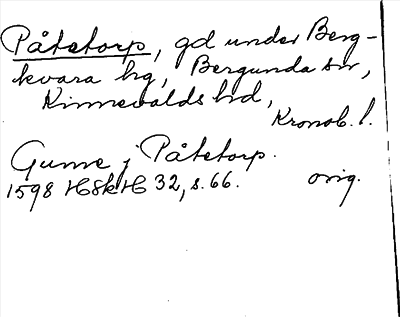 Påtetorp, gd under Berg-
kvara hg, Bergunda sn,
Kinnevalds hd,
Kronob. l.
Gunne j Påtetorp.
1598 HSkH 32, s. 66. orig.